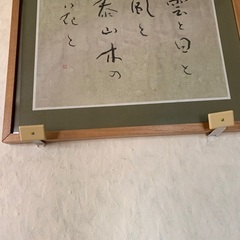 雲と日と
風と
泰山木の
花と